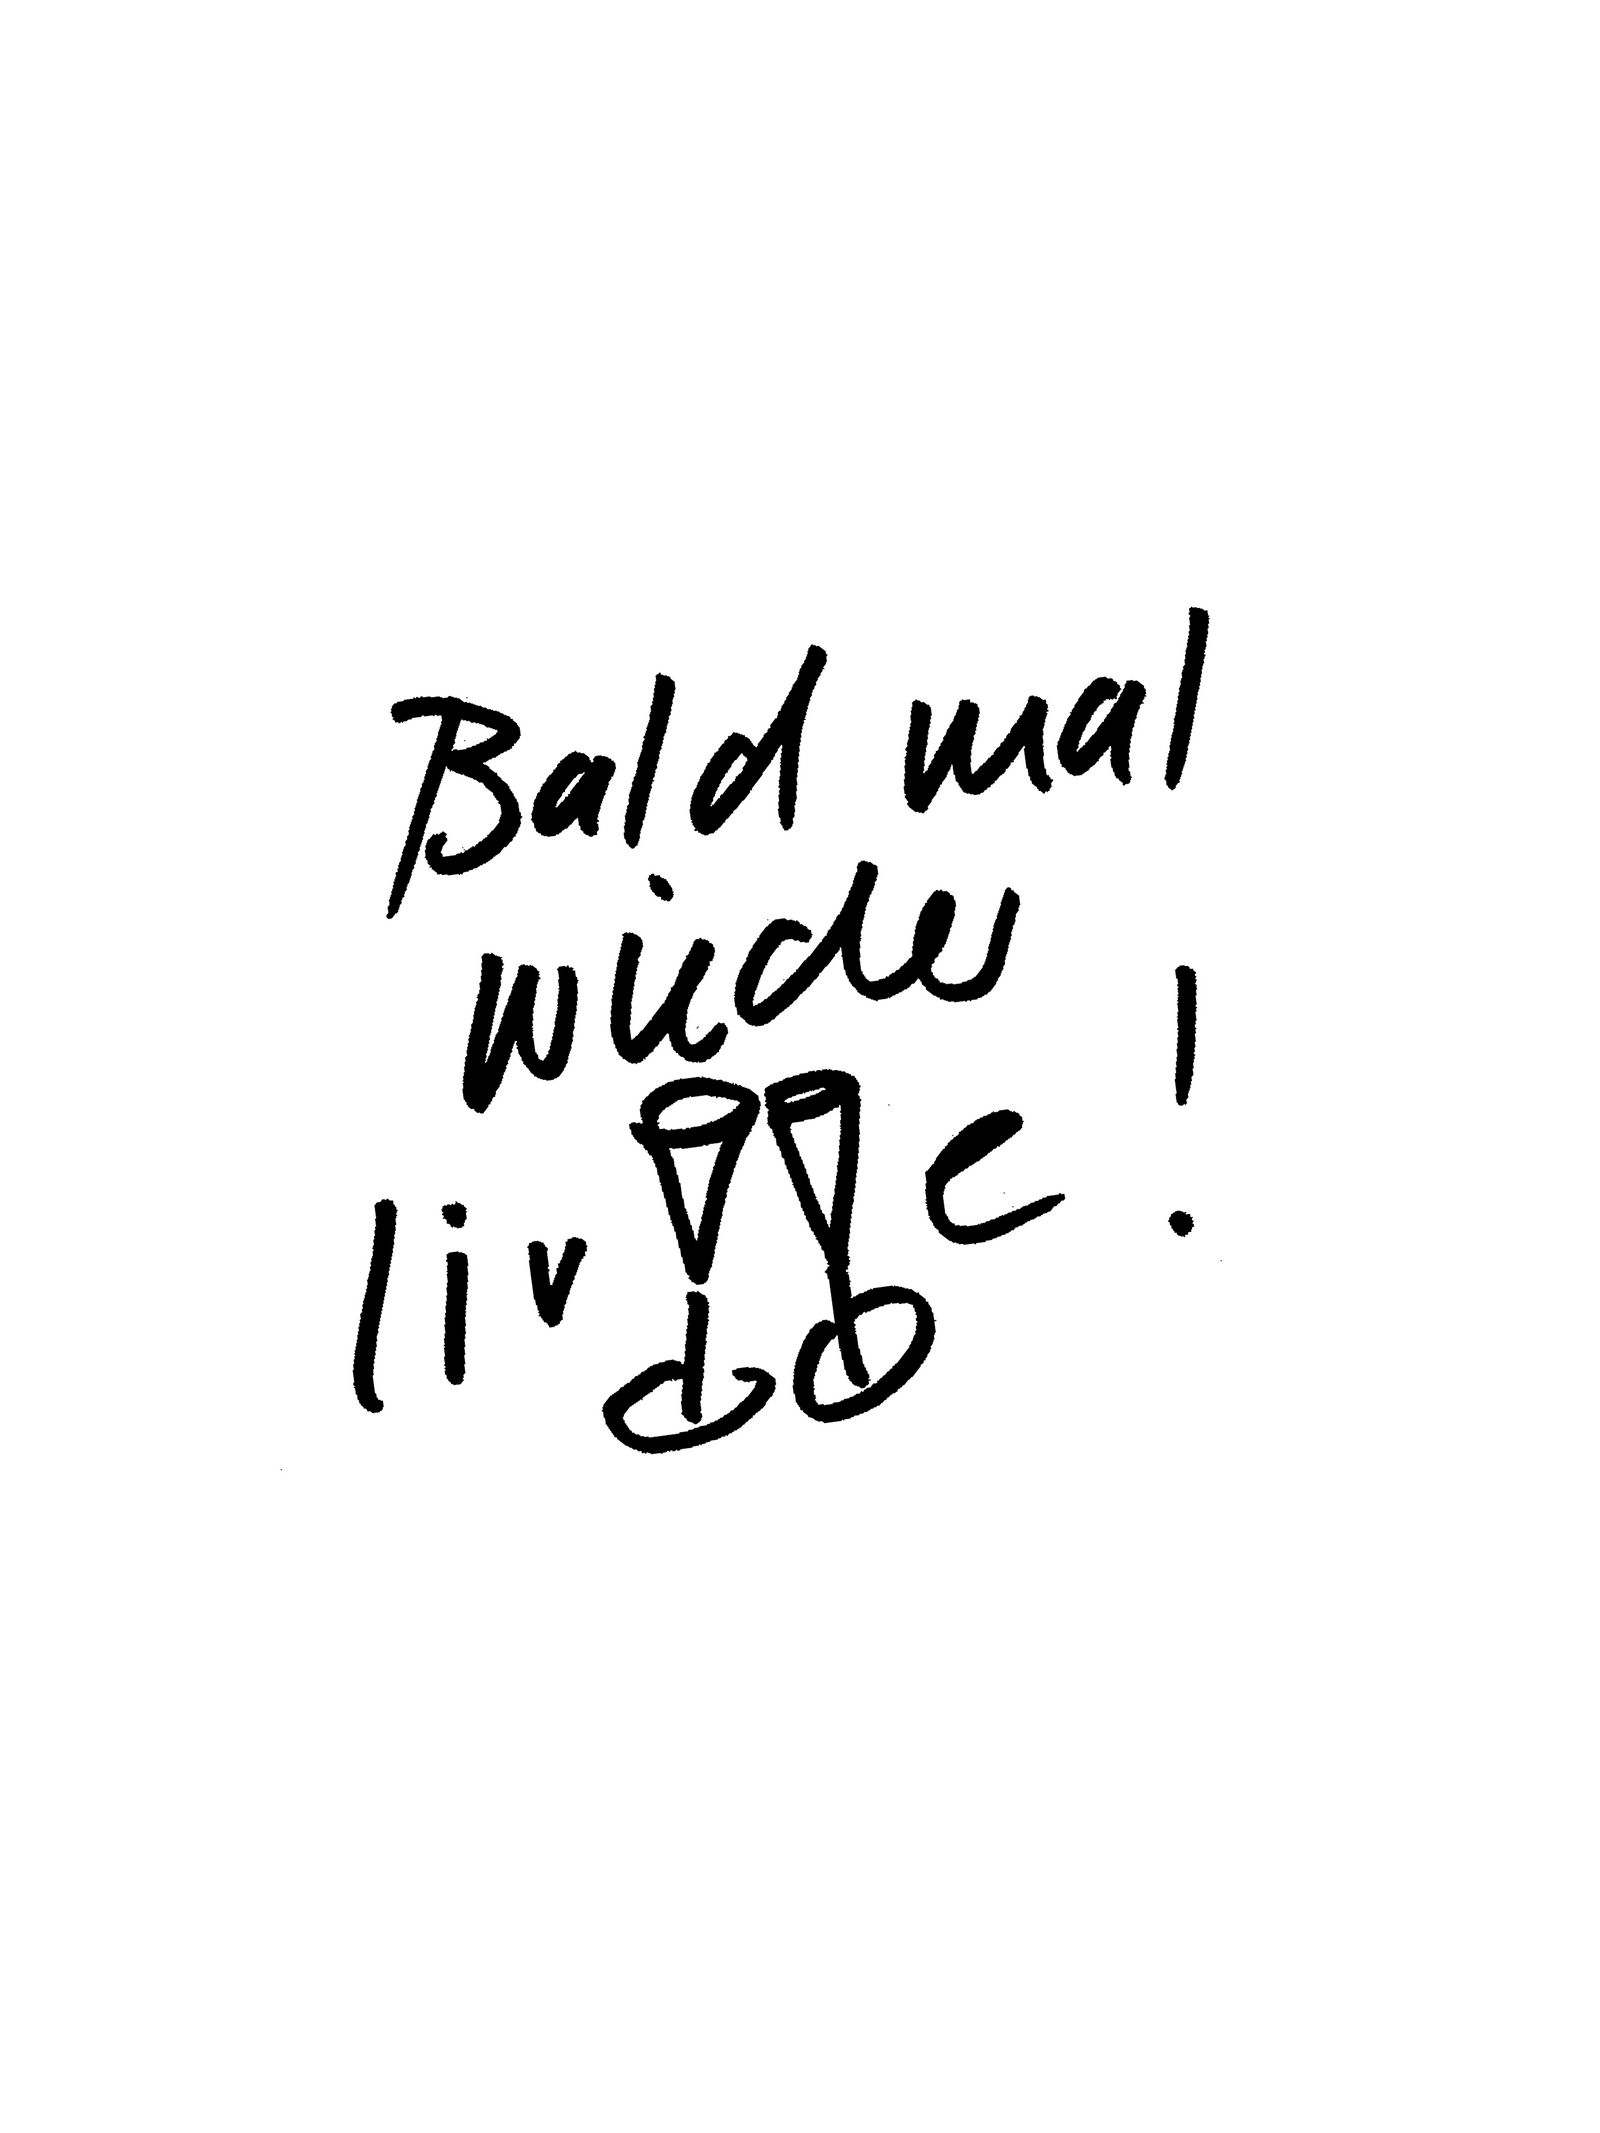 Bald mal
wieder
live!